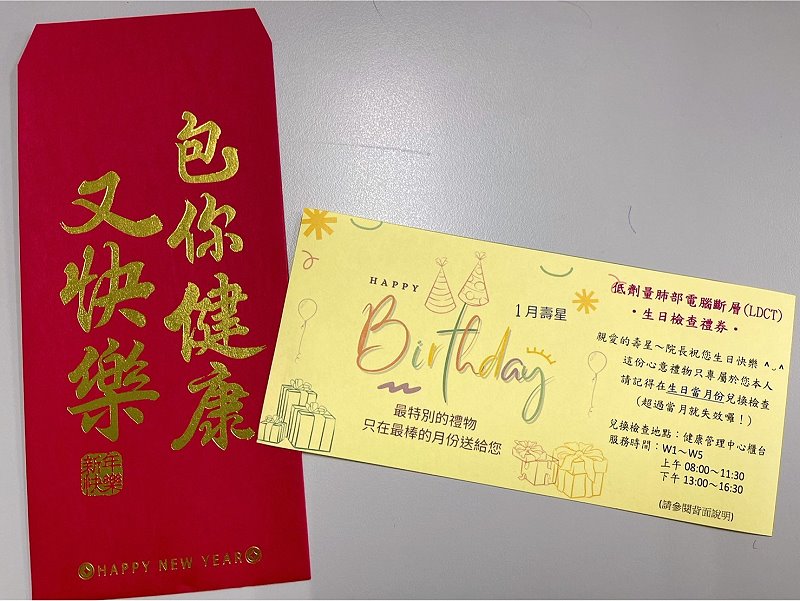 包你健康
又快樂
新年
快樂
HAPPY NEW YEAR
HAPPY
Birthday
1月壽星
最特別的禮物
只在最棒的月份送給您
低劑量肺部電腦斷層(LDCT)
•生日檢查禮券•
親愛的壽星～院長祝您生日快樂 ^_^
這份心意禮物只專屬於您本人
請記得在生日當月份兌換檢查
(超過當月就失效囉！)
兌換檢查地點：健康管理中心櫃台
服務時間：W1～W5
上午 08:00～11:30
下午 13:00～16:30
(請參閱背面說明)